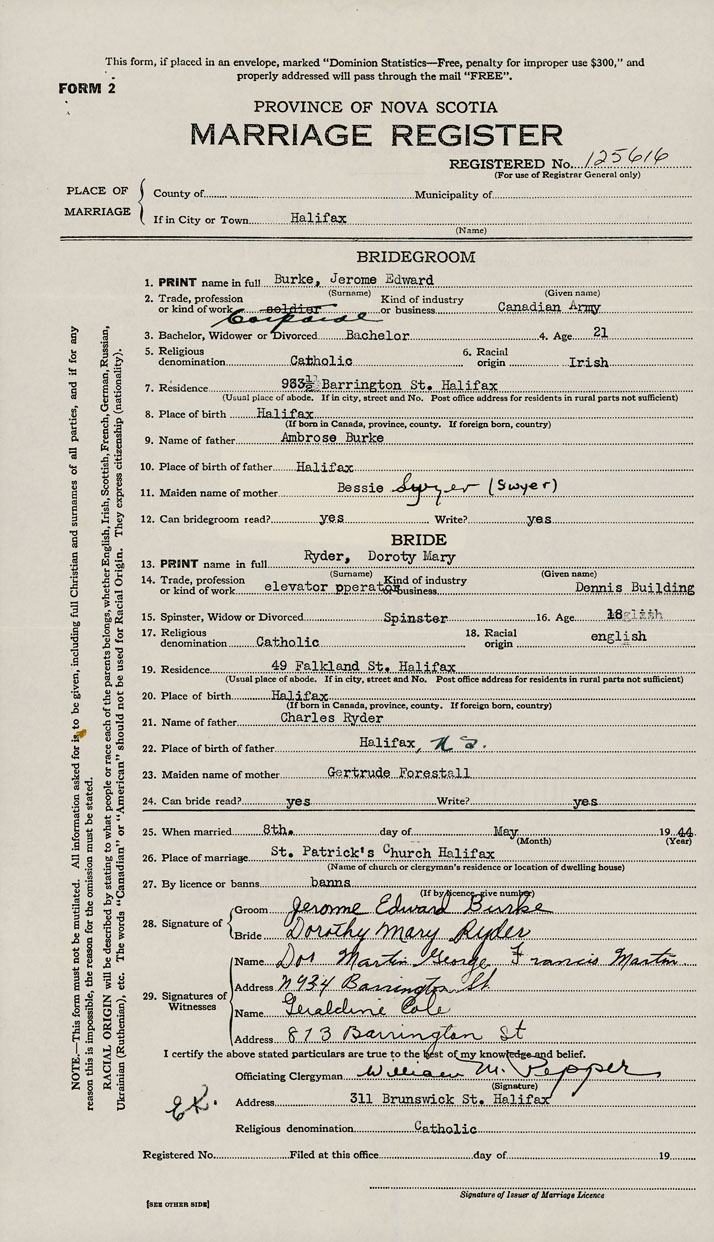 This form, if placed in an envelope, marked "Dominion Statistics—Free, penalty for improper use $300," and
properly addressed will pass through the mail "FREE".
FORM 2
PROVINCE OF NOVA SCOTIA
MARRIAGE REGISTER
REGISTERED No. 125616
(For use of Registrar General only)
PLACE OF MARRIAGE
County of Municipality of
If in City or Town Halifax
(Name)
BRIDEGROOM
1. PRINT name in full Burke, Jerome Edward
(Surname) (Given name)
2. Trade, profession or kind of work soldier Corporal Kind of industry or business Canadian Army
3. Bachelor, Widower or Divorced Bachelor 4. Age 21
5. Religious denomination Catholic 6. Racial origin Irish
7. Residence 983½ Barrington St. Halifax
(Usual place of abode. If in city, street and No. Post office address for residents in rural parts not sufficient)
8. Place of birth Halifax
(If born in Canada, province, county. If foreign born, country)
9. Name of father Ambrose Burke
10. Place of birth of father Halifax
11. Maiden name of mother Bessie Swyer (Swyer)
12. Can bridegroom read? yes Write? yes
BRIDE
13. PRINT name in full Ryder, Doroty Mary
(Surname) (Given name)
14. Trade, profession or kind of work elevator pperator Kind of industry or business Dennis Building
15. Spinster, Widow or Divorced Spinster 16. Age 18
17. Religious denomination Catholic 18. Racial origin english
19. Residence 49 Falkland St. Halifax
(Usual place of abode. If in city, street and No. Post office address for residents in rural parts not sufficient)
20. Place of birth Halifax
(If born in Canada, province, county. If foreign born, country)
21. Name of father Charles Ryder
22. Place of birth of father Halifax, N S.
23. Maiden name of mother Gertrude Forestall
24. Can bride read? yes Write? yes
25. When married 8th. day of May 19 44
(Month) (Year)
26. Place of marriage St. Patrick's Church Halifax
(Name of church or clergyman's residence or location of dwelling house)
27. By licence or banns banns
(If by licence, give number)
28. Signature of
Groom Jerome Edward Burke
Bride Dorothy Mary Ryder
29. Signatures of Witnesses
Name Martin George Francis Martin
Address 934 Barrington St
Name Geraldine Cole
Address 813 Barrington St
I certify the above stated particulars are true to the best of my knowledge and belief.
Officiating Clergyman William M. Pepper
(Signature)
Address 311 Brunswick St. Halifax
Religious denomination Catholic
Registered No. Filed at this office day of 19
Signature of Issuer of Marriage Licence
[SEE OTHER SIDE]
NOTE.—This form must not be mutilated. All information asked for is to be given, including full Christian and surnames of all parties, and if for any
reason this is impossible, the reason for the omission must be stated.
RACIAL ORIGIN will be described by stating to what people or race each of the parents belongs, whether English, Irish, Scottish, French, German, Russian,
Ukrainian (Ruthenian), etc. The words "Canadian" or "American" should not be used for Racial Origin. They express citizenship (nationality).